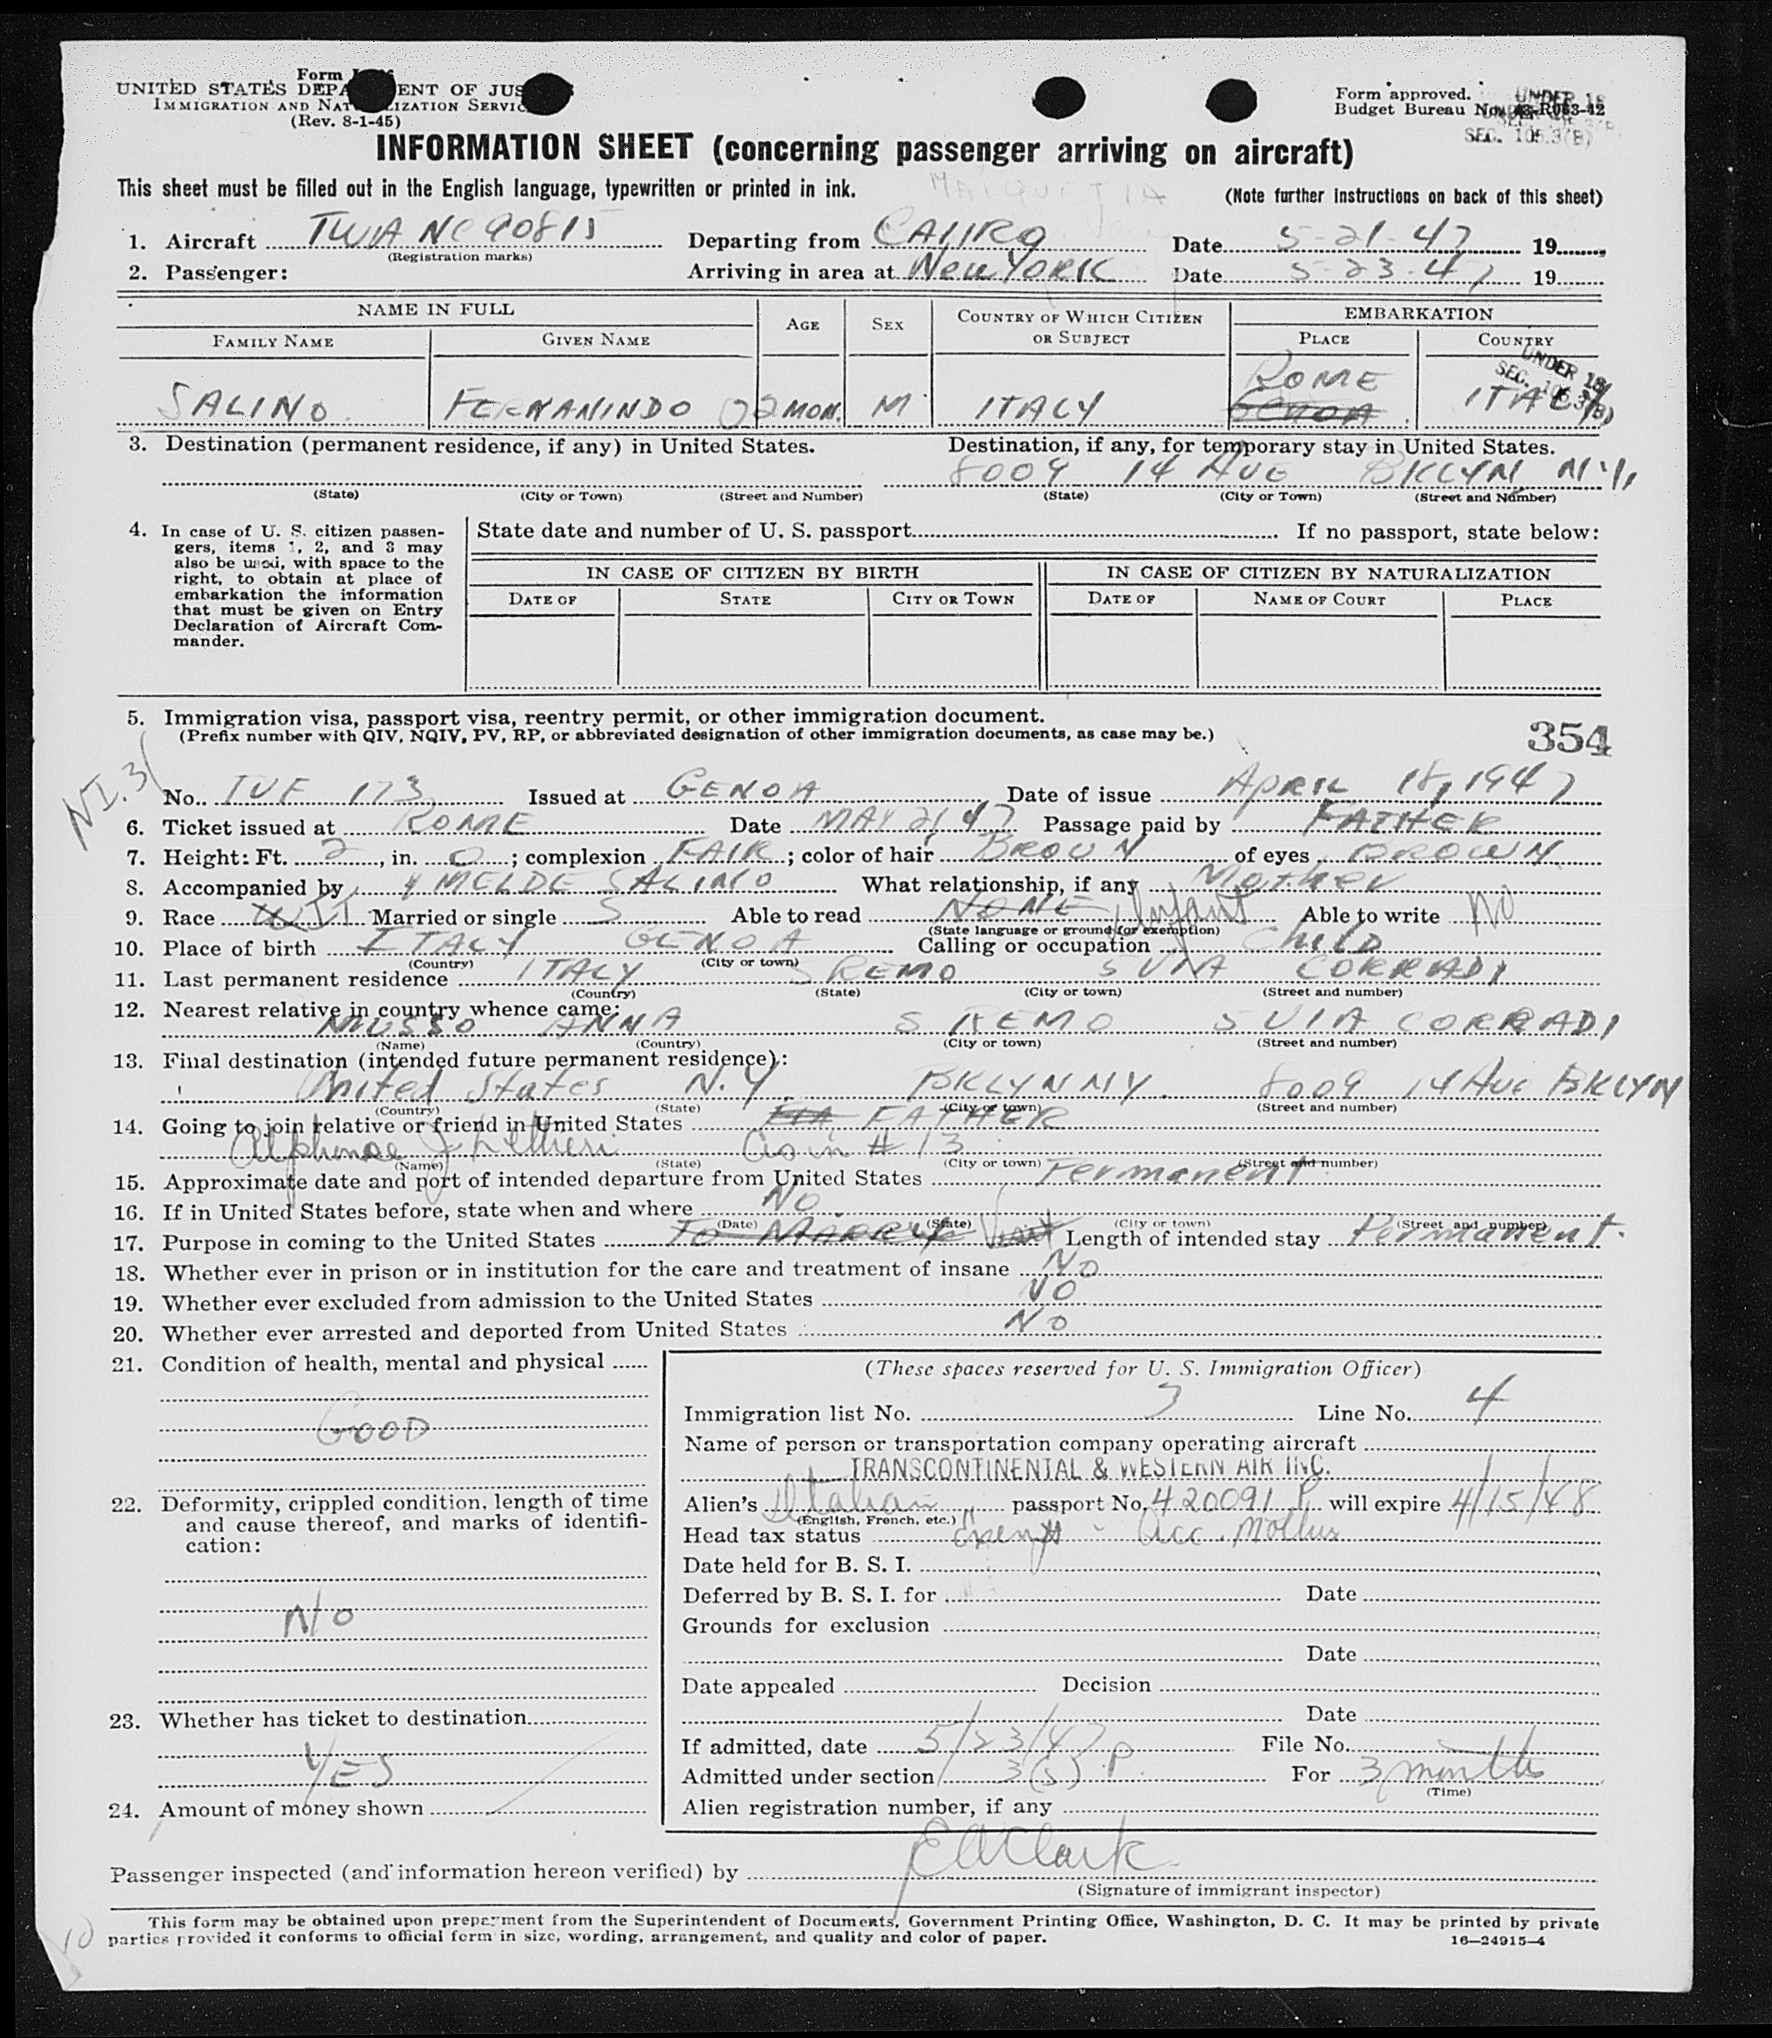 Form
UNITED STATES DEPA ENT OF JUS
IMMIGRATION AND NAT IZATION SERVIC
(Rev. 8-1-45)
Form approved.
Budget Bureau No. 43-R063-42
UNDER 18
SEC. 105.3(B)
INFORMATION SHEET (concerning passenger arriving on aircraft)
This sheet must be filled out in the English language, typewritten or printed in ink.
MAIQUETIA
(Note further instructions on back of this sheet)
1. Aircraft TWA NC 90815 Departing from CAIIRO Date 5-21-47 19
(Registration marks)
2. Passenger: Arriving in area at New YORK Date 5-23-47 19
NAME IN FULL AGE SEX COUNTRY OF WHICH CITIZEN OR SUBJECT EMBARKATION
FAMILY NAME GIVEN NAME PLACE COUNTRY
UNDER 18
SEC. 105.3(B)
ROME
SALINO FERNANINDO 2 MON. M ITALY GENOA ITALY
3. Destination (permanent residence, if any) in United States. Destination, if any, for temporary stay in United States.
8009 14 AVE BKLYN, N.Y.
(State) (City or Town) (Street and Number) (State) (City or Town) (Street and Number)
4. In case of U. S. citizen passengers, items 1, 2, and 3 may also be used, with space to the right, to obtain at place of embarkation the information that must be given on Entry Declaration of Aircraft Commander.
State date and number of U. S. passport If no passport, state below:
IN CASE OF CITIZEN BY BIRTH IN CASE OF CITIZEN BY NATURALIZATION
DATE OF STATE CITY OR TOWN DATE OF NAME OF COURT PLACE
5. Immigration visa, passport visa, reentry permit, or other immigration document.
(Prefix number with QIV, NQIV, PV, RP, or abbreviated designation of other immigration documents, as case may be.)
354
NI.31
No. TVF 173 Issued at GENOA Date of issue APRIL 18, 1947
6. Ticket issued at ROME Date MAY 21 47 Passage paid by FATHER
7. Height: Ft. 2, in. 0; complexion FAIR; color of hair BROUN of eyes BROWN
8. Accompanied by YMELDE SALINO What relationship, if any Mother
9. Race WIT Married or single S Able to read NONE, Infant Able to write NO
(State language or ground for exemption)
10. Place of birth ITALY GENOA Calling or occupation Child
(Country) (City or town)
11. Last permanent residence ITALY S REMO 5 VIA CORRADI
(Country) (State) (City or town) (Street and number)
12. Nearest relative in country whence came:
MUSSO ANNA S REMO 5 VIA CORRADI
(Name) (Country) (City or town) (Street and number)
13. Final destination (intended future permanent residence):
United States N.Y. BKLYN NY. 8009 14 Ave BKLYN
(Country) (State) (City or town) (Street and number)
14. Going to join relative or friend in United States FIA FATHER
Alphonse J. Letheri as in # 13
(Name) (State) (City or town) (Street and number)
15. Approximate date and port of intended departure from United States Permanent
16. If in United States before, state when and where No.
(Date) (State) (City or town) (Street and number)
17. Purpose in coming to the United States TO MARRY Visit Length of intended stay Permanent.
18. Whether ever in prison or in institution for the care and treatment of insane NO
19. Whether ever excluded from admission to the United States NO
20. Whether ever arrested and deported from United States NO
21. Condition of health, mental and physical
GOOD
22. Deformity, crippled condition, length of time and cause thereof, and marks of identification:
NO
23. Whether has ticket to destination
YES
24. Amount of money shown
(These spaces reserved for U. S. Immigration Officer)
Immigration list No. 3 Line No. 4
Name of person or transportation company operating aircraft
TRANSCONTINENTAL & WESTERN AIR INC.
Alien's Italian passport No. 420091 P will expire 4/15/48
(English, French, etc.)
Head tax status Exempt - Acc. Mother
Date held for B. S. I.
Deferred by B. S. I. for Date
Grounds for exclusion
Date
Date appealed Decision
Date
If admitted, date 5/23/47 File No.
Admitted under section 3(5) P. For 3 months
(Time)
Alien registration number, if any
Passenger inspected (and information hereon verified) by EA Clark
(Signature of immigrant inspector)
This form may be obtained upon prepayment from the Superintendent of Documents, Government Printing Office, Washington, D. C. It may be printed by private
parties provided it conforms to official form in size, wording, arrangement, and quality and color of paper.
16—24915-4
10